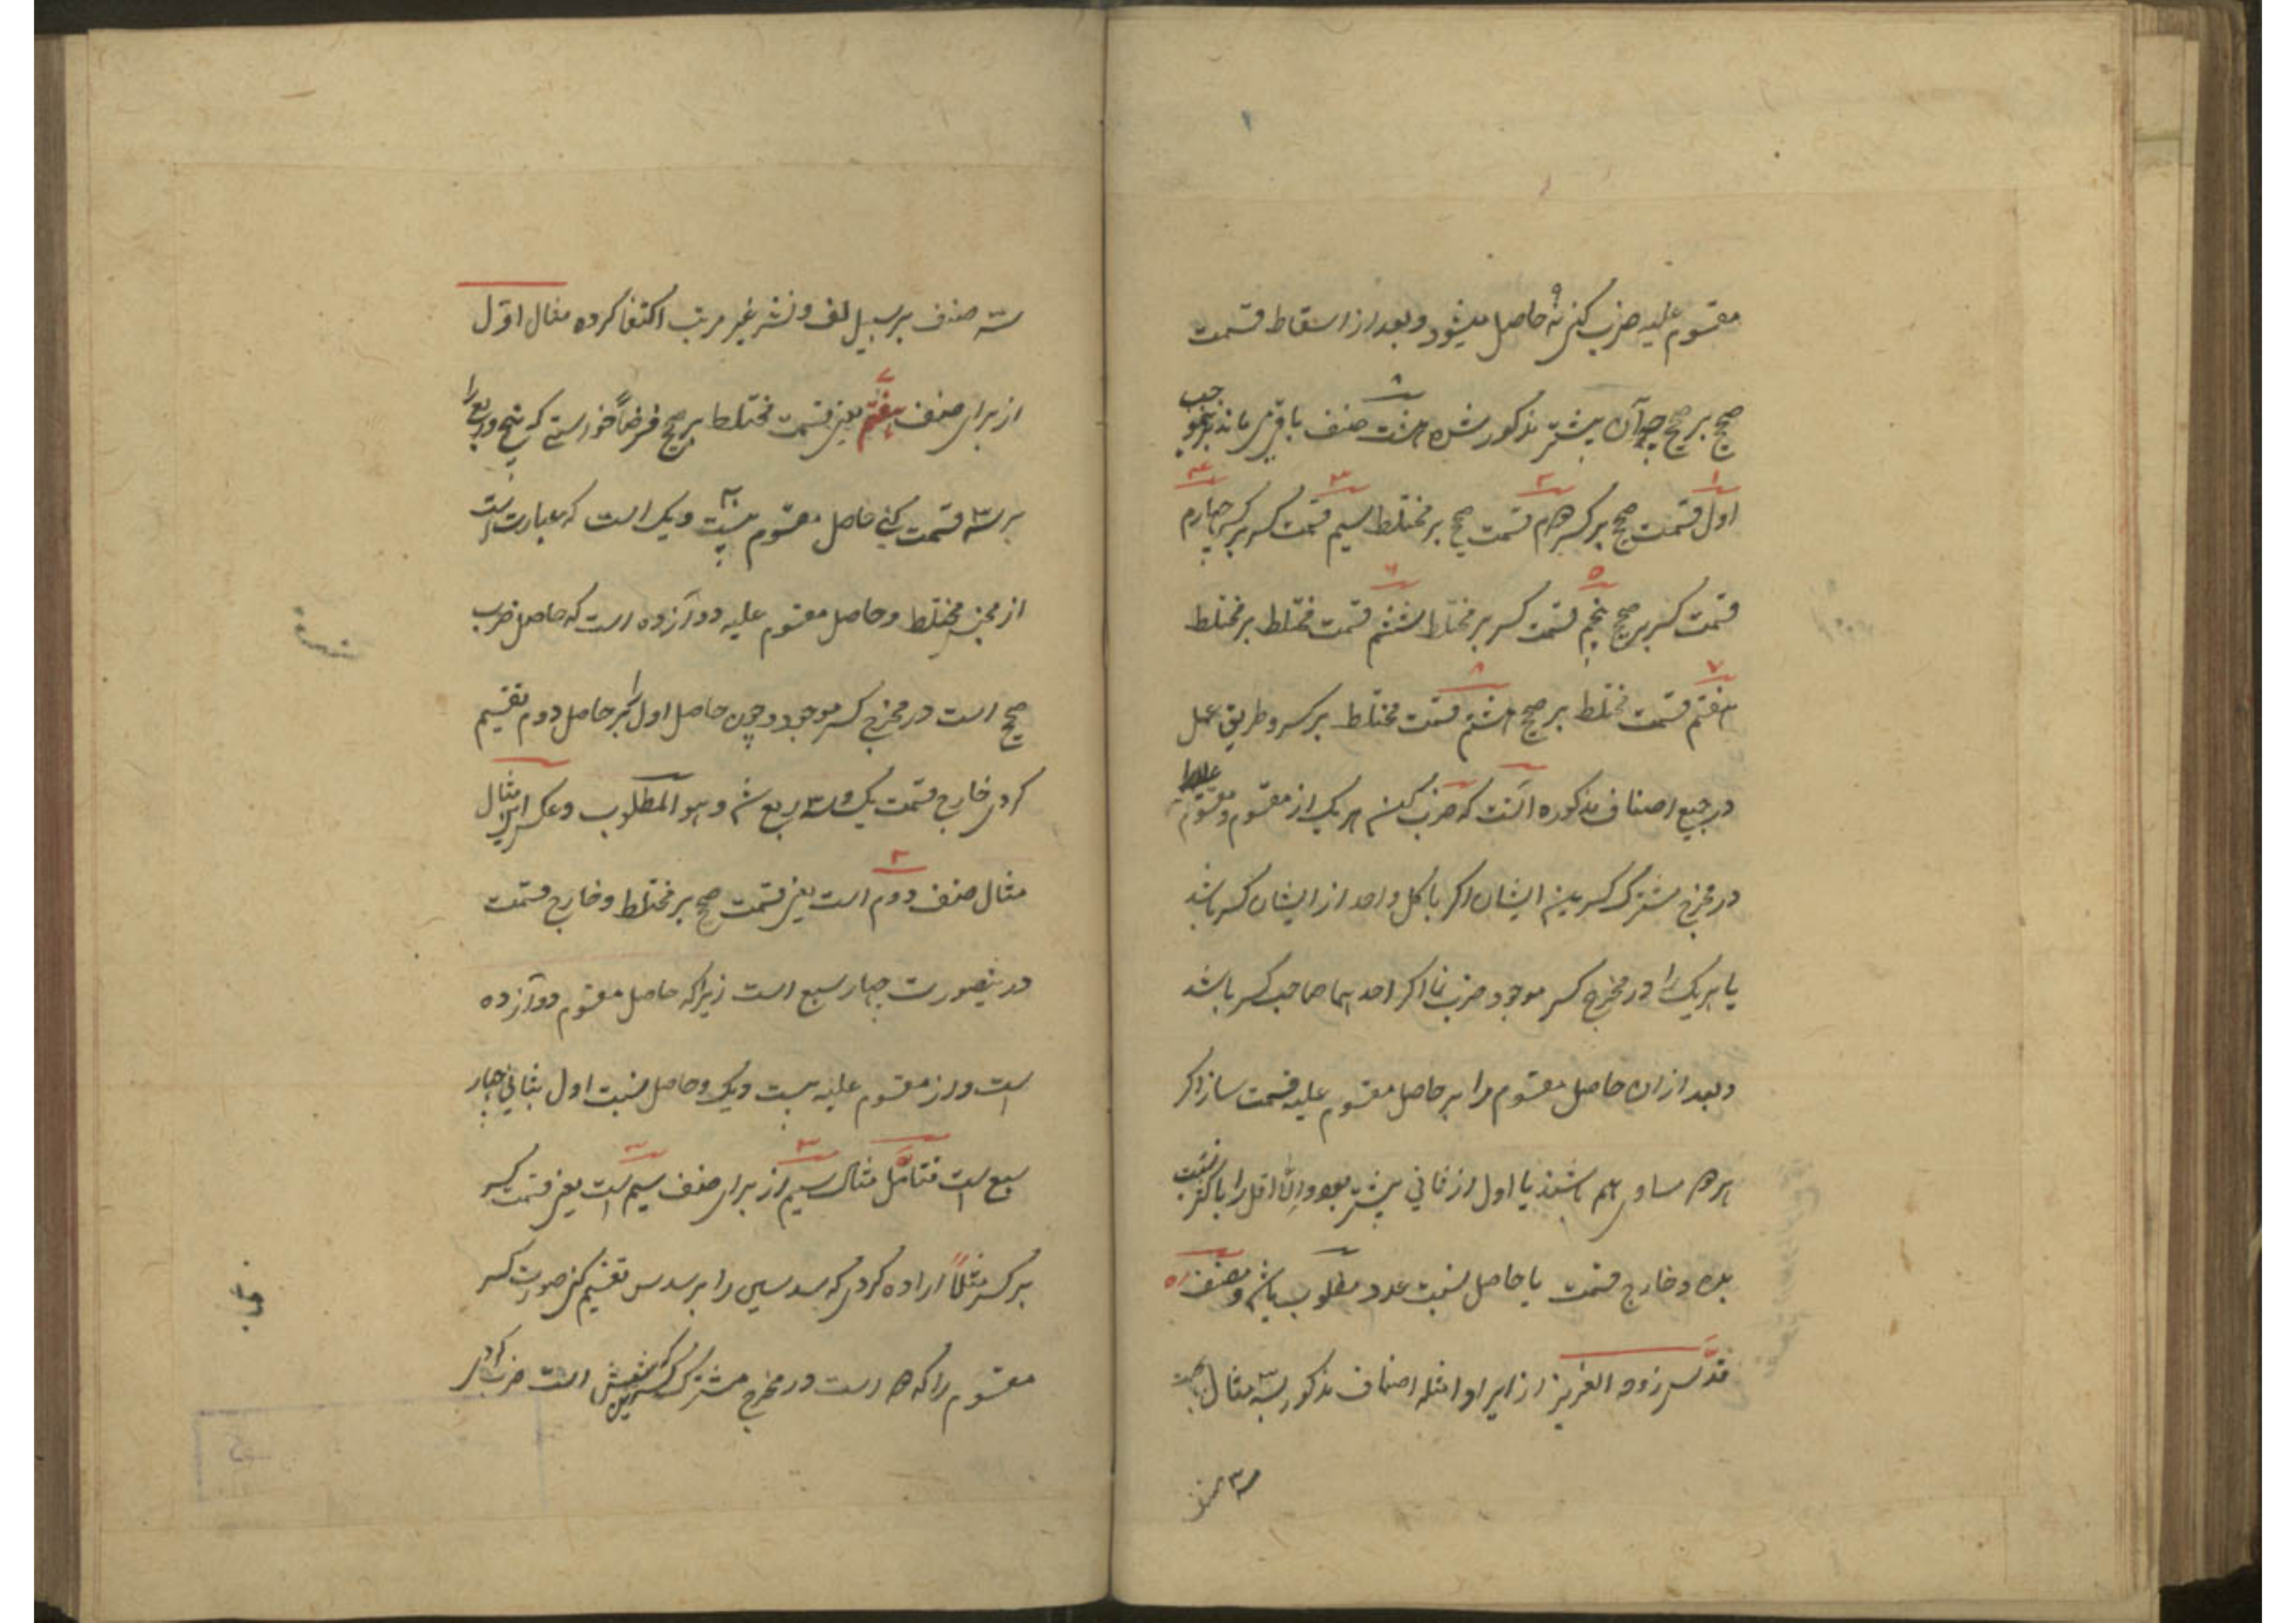 مقسوم علیه ضرب کنی نه حاصل میشود و بعد از اسقاط قسمت
صحیح بر صحیح چه آن بیشتر مذکور شده هشت صنف باقی می ماند
اول قسمت صحیح بر کسر دوم قسمت صحیح بر مختلط سیم قسمت کسر بر کسر چهارم
قسمت کسر بر صحیح پنجم قسمت کسر بر مختلط ششم قسمت مختلط بر مختلط
هفتم قسمت مختلط بر صحیح هشتم قسمت مختلط بر کسر و طریق عمل
در جمیع اصناف مذکوره آنست که ضرب کن هر یک از مقسوم و مقسوم علیه
در مخرج مشترک کسرین ایشان اگر با کل واحد از ایشان کسر باشد
یا هر یک را در مخرج کسر موجود ضرب نما اگر احدیهما صاحب کسر باشد
و بعد از ان حاصل مقسوم را بر حاصل مقسوم علیه قسمت ساز اگر
هر دو مساوی هم باشند یا اول از ثانی بیشتر بود والّا اقل را باکثر نسبت
بده و خارج قسمت یا حاصل نسبت عدد مطلوب باشد و مصنف
قدّس روحه العزیز از ایراد امثله اصناف مذکور بسه مثال
سه صنف
سه صنف بر سبیل لف و نشر غیر مرتب اکتفا کرده مثال اوّل
از برای صنف هفتم یعنی قسمت مختلط بر صحیح فرضاً خواستی که پنج و ربع را
بر سه قسمت کنی حاصل مقسوم بیست و یک است که عبارت است
از مجنس مختلط و حاصل مقسوم علیه دوآزده است که حاصل ضرب
صحیح است در مخرج کسر موجود و چون حاصل اول را بر حاصل دوم تقسیم
کردی خارج قسمت یک و سه ربع شد و هو المطلوب و عکس این مثال
مثال صنف دوم است یعنی قسمت صحیح بر مختلط و خارج قسمت
درینصورت چهار سبع است زیرا که حاصل مقسوم دوآزده
است و از مقسوم علیه بیست و یک و حاصل نسبت اول بثانی چهار
سبع است فتامّل مثال سیم از برای صنف سیم است یعنی قسمت کسر
بر کسر مثلاً اراده کردی که سدسین را بر سدس تقسیم کنی صورت کسر
مقسوم را که ۲ است در مخرج مشترک کسرین که شش است ضرب کردی